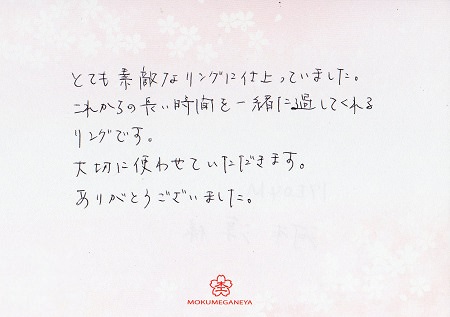 とても素敵なリングに仕上っていました。
これからの長い時間を一緒に過してくれる
リングです。
大切に使わせていただきます。
ありがとうございました。
MOKUMEGANEYA